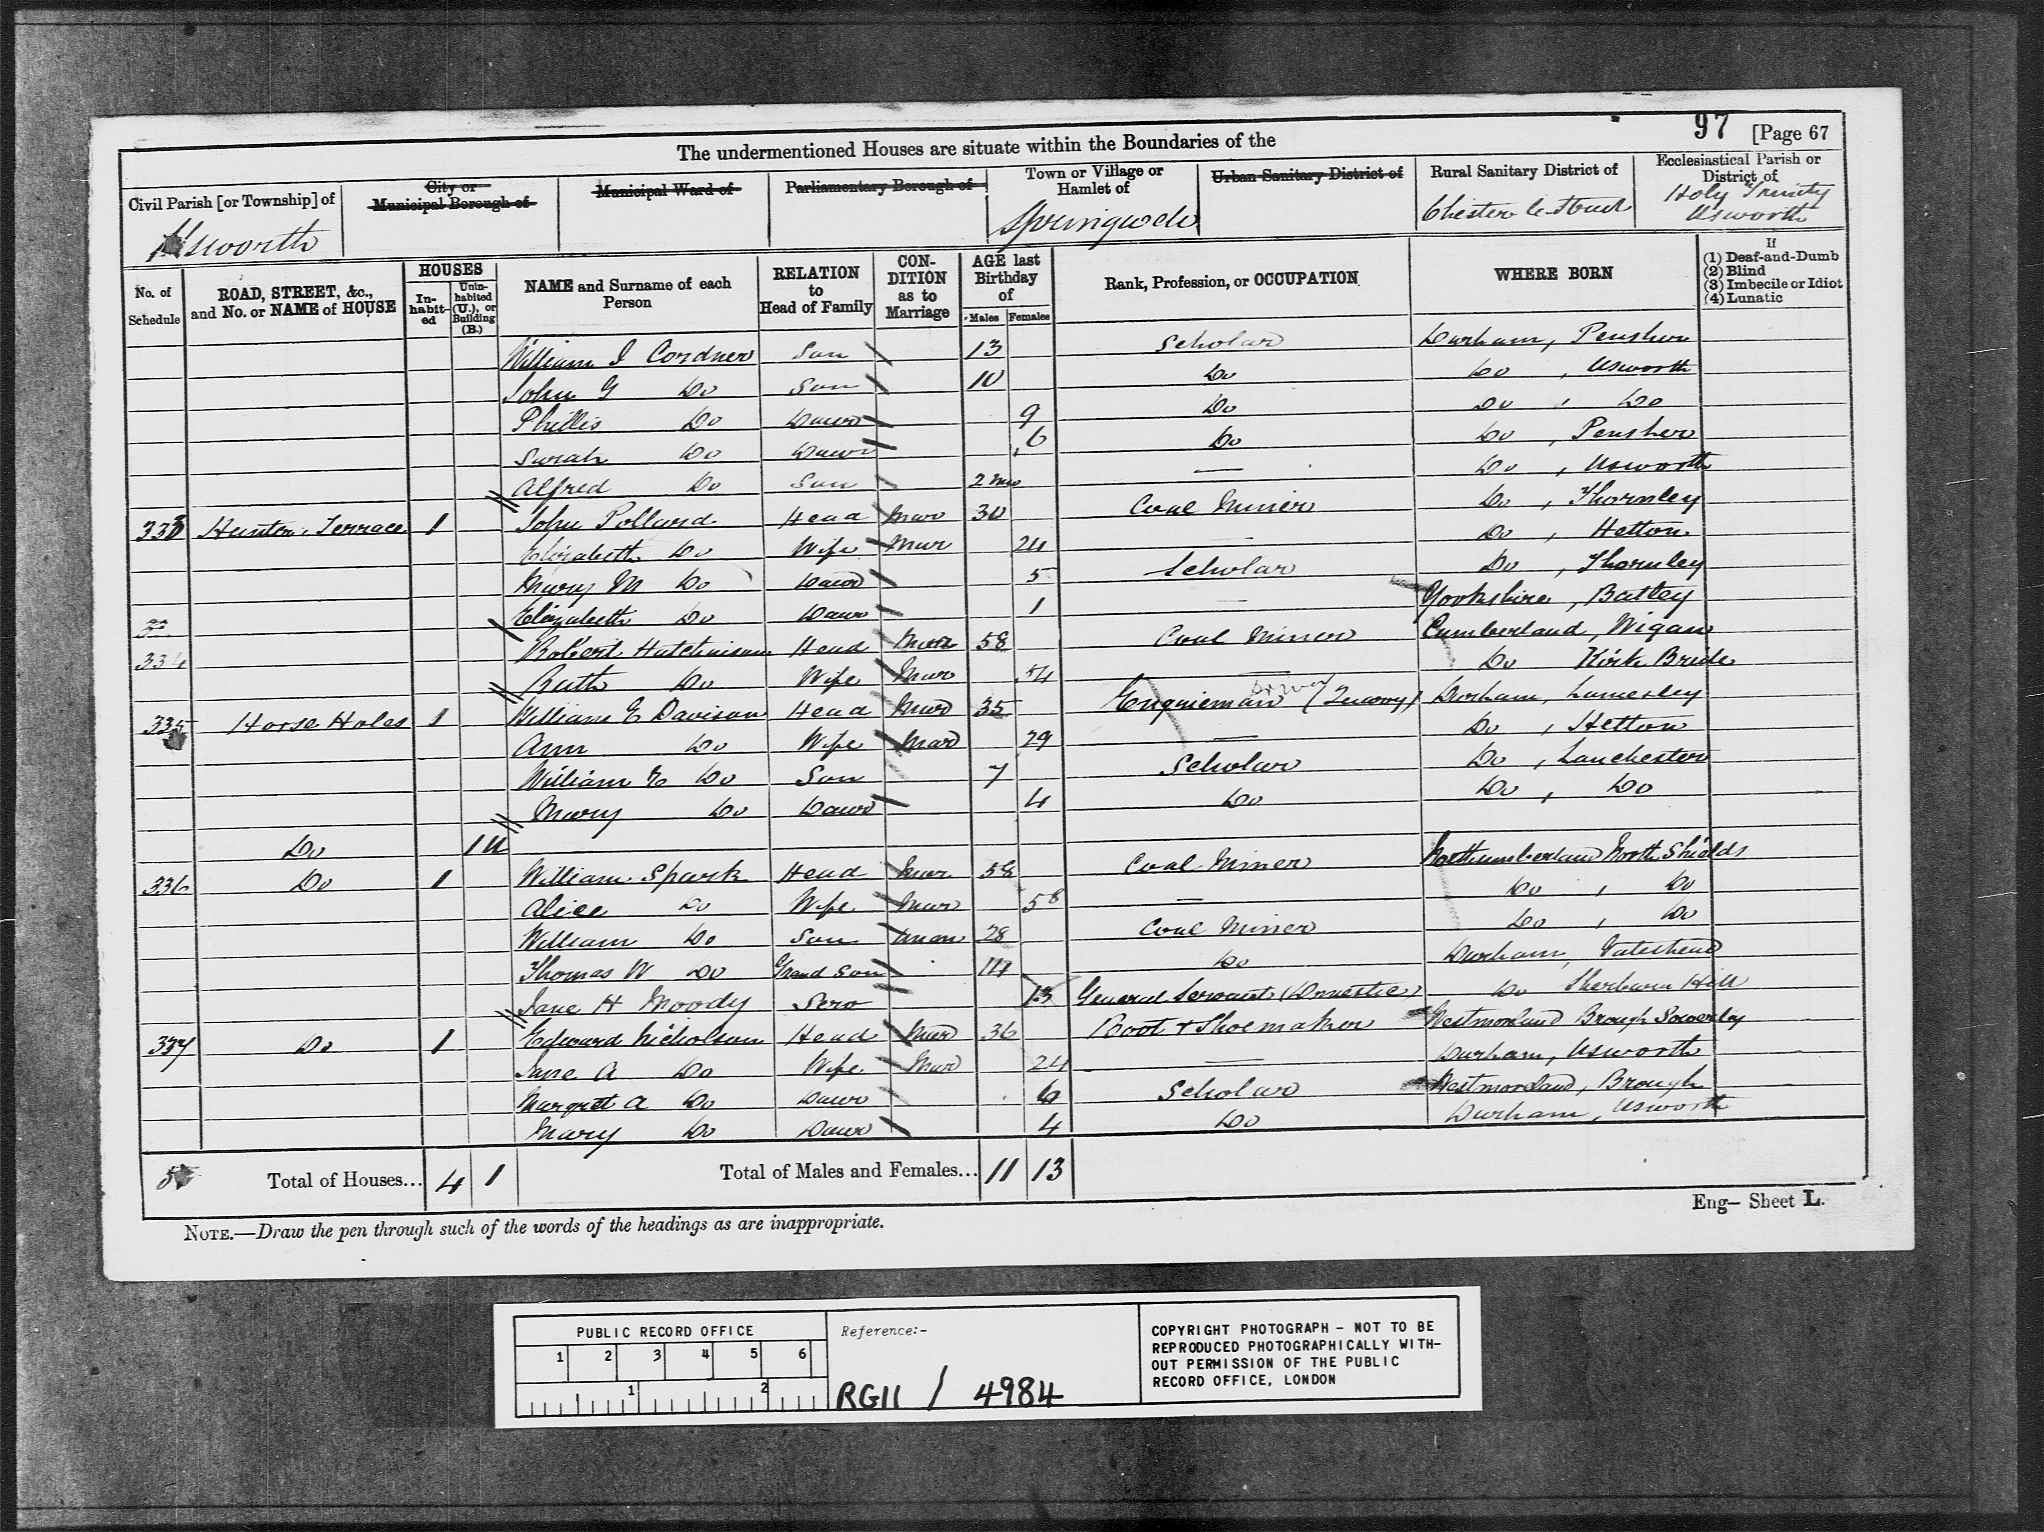 97 [Page 67
The undermentioned Houses are situate within the Boundaries of the
Civil Parish [or Township] of City or Municipal Borough of Municipal Ward of Parliamentary Borough of Town or Village or Hamlet of Urban Sanitary District of Rural Sanitary District of Ecclesiastical Parish or District of
Usworth Springwell Chester le Street Holy Trinity Usworth
No. of Schedule ROAD, STREET, &c., and No. or NAME of HOUSE HOUSES Inhabited Uninhabited (U.), or Building (B.) NAME and Surname of each Person RELATION to Head of Family CONDITION as to Marriage AGE last Birthday of Males Females Rank, Profession, or OCCUPATION WHERE BORN If (1) Deaf-and-Dumb (2) Blind (3) Imbecile or Idiot (4) Lunatic
William J Cordner Son 13 Scholar Durham, Pensher
John G Do Son 10 Do Do, Usworth
Phillis Do Daur 9 Do Do, Do
Sarah Do Daur 6 Do Do, Pensher
Alfred Do Son 2 mo — Do, Usworth
333 Terrace 1 John Pollard Head Mar 30 Coal Miner Do, Thornley
Elizabeth Do Wife Mar 24 — Do, Hetton
Mary M Do Daur 5 Scholar Do, Thornley
Elizabeth Do Daur 1 — Yorkshire, Batley
334 Robert Hutchinson Head Mar 58 Coal Miner Cumberland, Wigan
Ruth Do Wife Mar 54 — Do Kirk Bride
335 Horse Holes 1 William E Davison Head Mar 35 Engineman Durham, Lamesley
Ann Do Wife Mar 29 — Do, Hetton
William E Do Son 7 Scholar Do, Lanchester
Mary Do Daur 4 Do Do, Do
Do 1 U
336 Do 1 William Spark Head Mar 58 Coal Miner Northumberland North Shields
Alice Do Wife Mar 58 — Do, Do
William Do Son Unm 28 Coal Miner Do, Do
Thomas W Do Grand Son 14 Do Durham, Gateshead
Jane H Moody Serv 13 General Servant (Domestic) Do Sherburn Hill
337 Do 1 Edward Nicholson Head Mar 36 Boot & Shoemaker Westmorland Brough Sowerby
Jane A Do Wife Mar 24 — Durham, Usworth
Margret A Do Daur 6 Scholar Westmorland, Brough
Mary Do Daur 4 Do Durham, Usworth
5 Total of Houses... 4 1 Total of Males and Females... 11 13
Eng— Sheet L.
NOTE.—Draw the pen through such of the words of the headings as are inappropriate.
PUBLIC RECORD OFFICE
1 2 3 4 5 6
1 2
Reference:-
RG11 / 4984
COPYRIGHT PHOTOGRAPH - NOT TO BE
REPRODUCED PHOTOGRAPHICALLY WITH-
OUT PERMISSION OF THE PUBLIC
RECORD OFFICE, LONDON